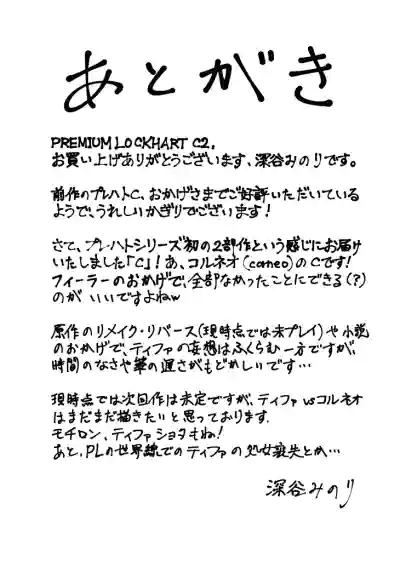 あとがき
PREMIUM LOCKHART C2,
お買い上げありがとうございます、深谷みのりです。
前作のプレハトC、おかげさまでご好評いただいている
ようで、うれしいかぎりでございます!
さて、プレハトシリーズ初の2部作という感じにお届け
いたしました「C」!あ、コルネオ(corneo)のCです!
フィーラーのおかげで、全部なかったことにできる(?)
のがいいですよねw
原作のリメイク・リバース(現時点では未プレイ)や小説
のおかげで、ティファの妄想はふくらむ一方ですが、
時間のなさや筆の遅さがもどかしいです…
現時点では次回作は未定ですが、ティファvsコルネオ
はまだまだ描きたいと思っております。
モチロン、ティファショタもね!
あと、PLの世界線でのティファの処女喪失とか…
深谷みのり